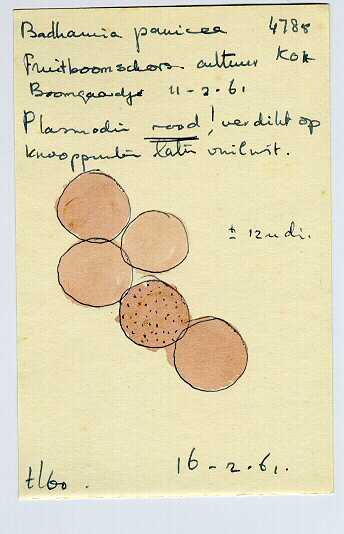 Badhamia panicea 4788
Fruitboomschors cultuur Kok
Boomgaardje 11-2-61
Plasmodium rood! verdikt op
knooppunten later vuilwit.
± 12 µ di.
16-2-61.